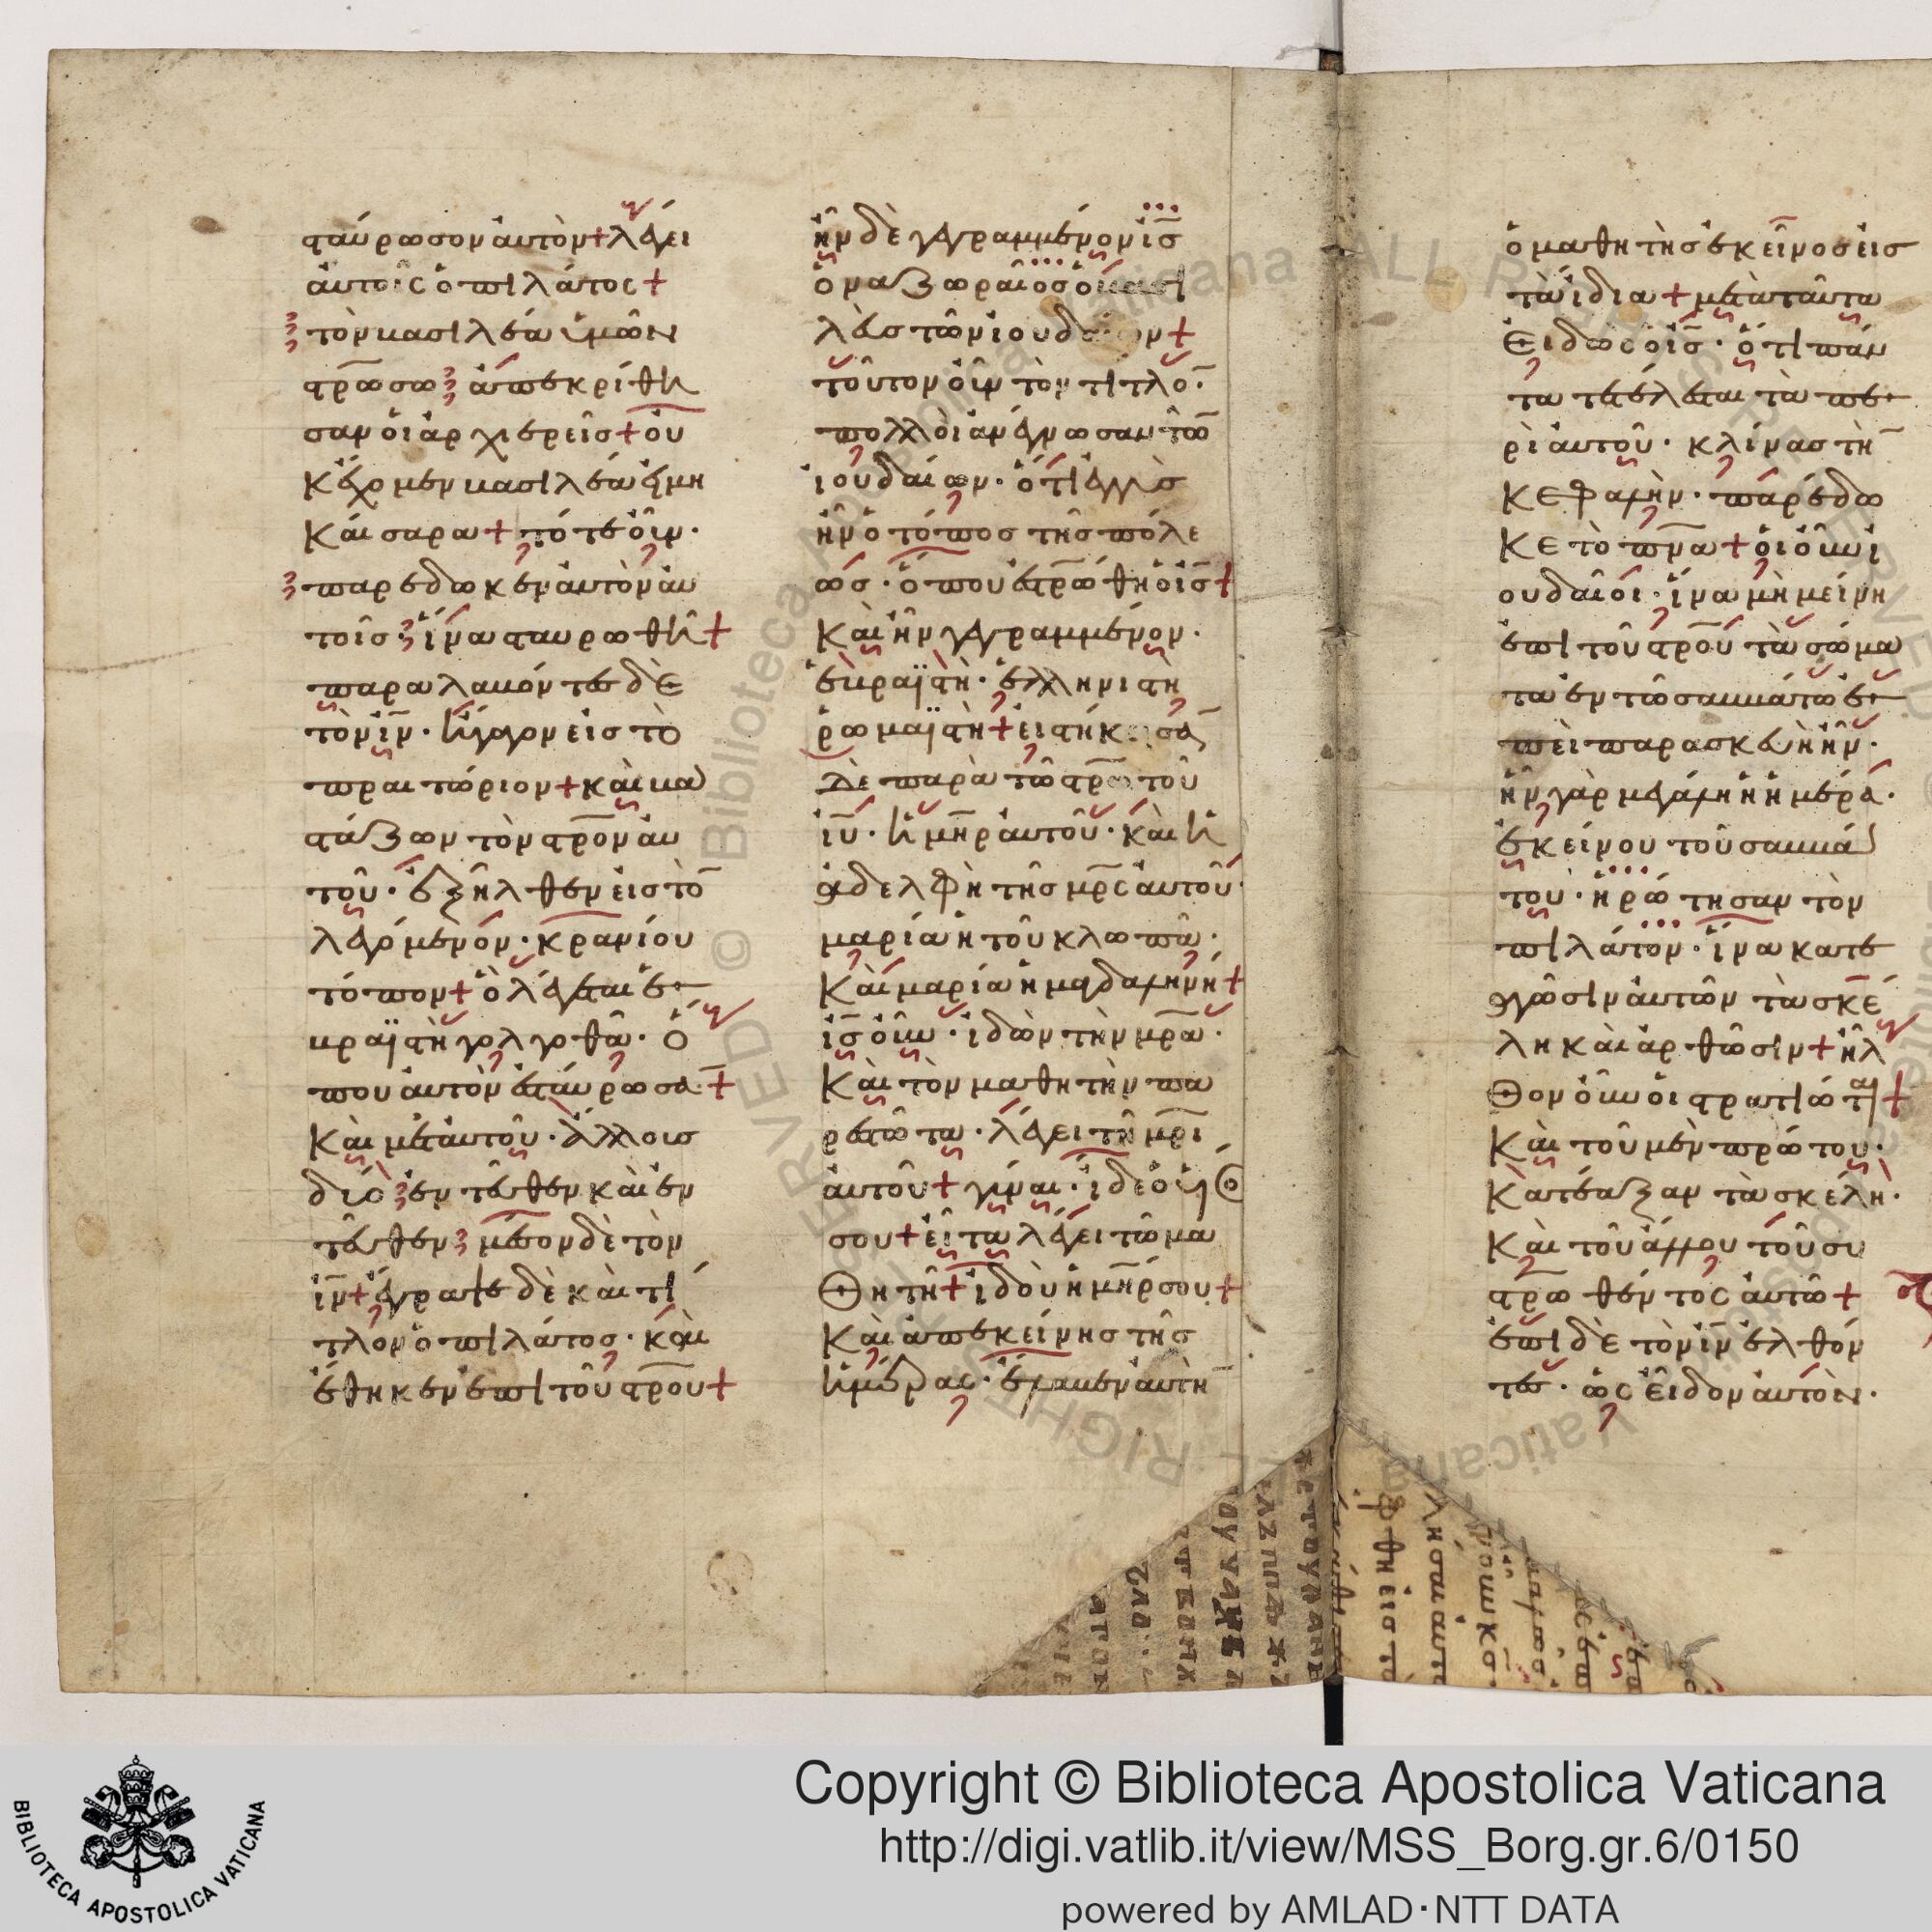 σταύρωσον ἀυτὸν+λέγει
ἀυτοῖς ὁ πιλάτος+
τὸν βασιλέα ὑμῶν
στρ̅ώσω ἀπεκρίθη
σαν ὁι ἀρχιερεῖς+ὀυ
Κ ἔχομεν βασιλέα ἐιμη
Κάισαρα+τότε ὀῦν·
παρέδωκεν ἀυτὸν ἀυ
τοῖς· ἵνα σταυρωθῆ+
παραλαβόντες δὲ
τὸν ι̅ν̅· ἤγαγον εἰς τὸ
πραιτώριον+κὰι βα
στάζων τὸν στρ̅ον ἀυ
τοῦ· ἐξῆλθεν εἰς το̅
λεγόμενον· κρανίου
τόπον+ὃ λέγεται ἑ
βραϊστὴ γολγοθᾶ· ὅ
που ἀυτὸν ἐσταύρωσα̅+
Κὰι μετ ἀυτοῦ· ἄλλους
δύο ἐντεῦθεν κὰι ἐν
τεῦθεν μέσον δὲ τὸν
ι̅ν̅+ἔγραψε δὲ κὰι τί
τλον ὁ πιλάτος· κὰι
ἔθηκεν ἐπὶ τοῦ στρ̅ου+
ἦν δὲ γεγραμμένον ι̅ς̅
ὁ ναζωραῖος ὁ βασι
λεὺς τῶν ἰουδαίων+
τοῦτον ὀῦν τὸν τίτλο̅·
πολλὸι ἀνέγνωσαν τῶ̅
ἰουδαίων· ὅτι ἐγγὺς
ἦν ὁ τόπος τῆς πόλε
ως· ὅπου ἐστρ̅ώθη ὁ ι̅ς̅+
Κὰι ἦν γεγραμμένον·
ἑβραϊστὴ· ἑλληνιστὴ
ῥωμαϊστὴ+εἱστήκεισα̅
Δὲ παρὰ τῶ στρ̅ω τοῦ
ι̅υ̅· ἡ μη̅ρ ἀυτοῦ· κὰι ἡ
ἀδελφὴ τῆς μρ̅ς ἀυτοῦ·
μαρία ἡ τοῦ κλωπᾶ·
Κὰι μαρία ἡ μαγδαληνή+
ι̅ς̅ ὀῦν· ἰδὼν τὴν μρ̅α·
Κὰι τὸν μαθητὴν πα
ρεστῶτα· λέγει τῆ μρ̅ι
ἀυτοῦ+γύναι· ἰδὲ ὁ υἱὸ
σου+εἶτα λέγει τῶ μα
Θητῆ+ἰδοὺ ἡ μη̅ρ σου+
Κὰι ἀπ ἐκείνης τῆς
ἡμέρας· ἔλαβεν ἀυτὴ̅
ὁ μαθητὴς ἐκεῖνος εἰς
τὰ ἴδια+μετὰ ταῦτα
Ἐιδὼς ὁ ι̅ς̅· ὅτι πάν
τα τετέλεσται τὰ πε
ρὶ ἀυτοῦ· κλίνας τὴ̅
Κεφαλὴν· παρέδω
Κε τὸ πν̅α+ὁι ὀῦν ἰ
ουδαῖοι· ἵνα μὴ μείνη
ἐπὶ τοῦ στρ̅οῦ τὰ σώμα
τα ἐν τῶ σαββάτω ἐ
πὲι παρασκευὴ ἦν·
ἦν γὰρ μεγάλη ἡ ἡμέρα·
ἐκείνου τοῦ σαββά
του· ἠρώτησαν τὸν
πιλάτον· ἵνα κατε
αγῶσιν ἀυτῶν τὰ σκέ
λη κὰι ἀρθῶσιν+ἦλ
Θον ὀῦν ὁι στρατιῶται+
Κὰι τοῦ μὲν πρώτου·
Κατέαξαν τὰ σκέλη·
Κὰι τοῦ ἄλλου τοῦ συ
στρ̅ωθέντος ἀυτῶ+
ἐπὶ δὲ τὸν ι̅ν̅ ἐλθόν
τες· ὡς εἶδον ἀυτὸν·
Copyright © Biblioteca Apostolica Vaticana
http://digi.vatlib.it/view/MSS_Borg.gr.6/0150
powered by AMLAD·NTT DATA
BIBLIOTECA APOSTOLICA VATICANA